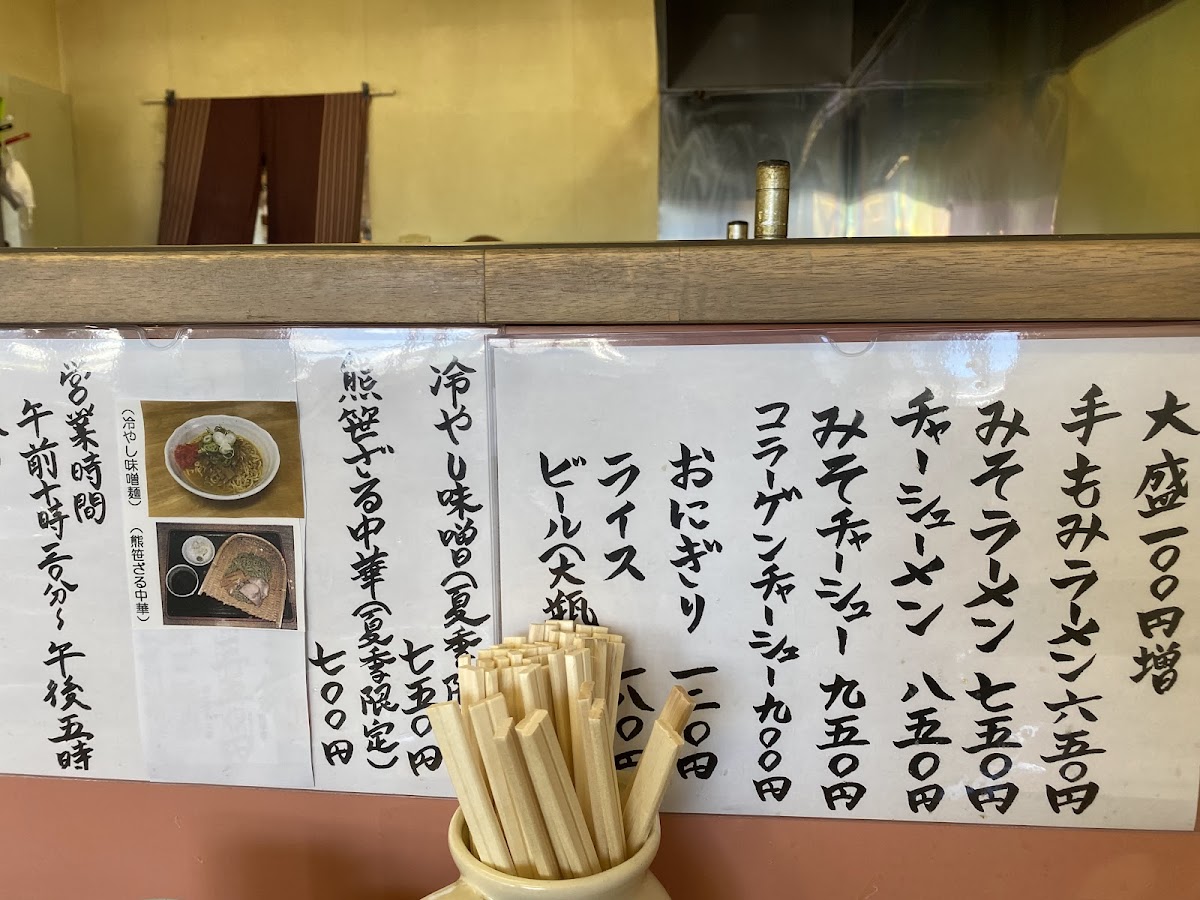 大盛一〇〇円増
手もみラーメン六五〇円
みそラーメン七五〇円
チャーシューメン 八五〇円
みそチャーシュー 九五〇円
コラーゲンチャーシュー九〇〇円
おにぎり 一三〇円
ライス 一八〇円
ビール(大瓶
冷やし味噌(夏季 七五〇円
熊笹ざる中華(夏季限定) 七〇〇円
(冷やし味噌麺)
(熊笹ざる中華)
営業時間
午前十時三〇分〜午後五時